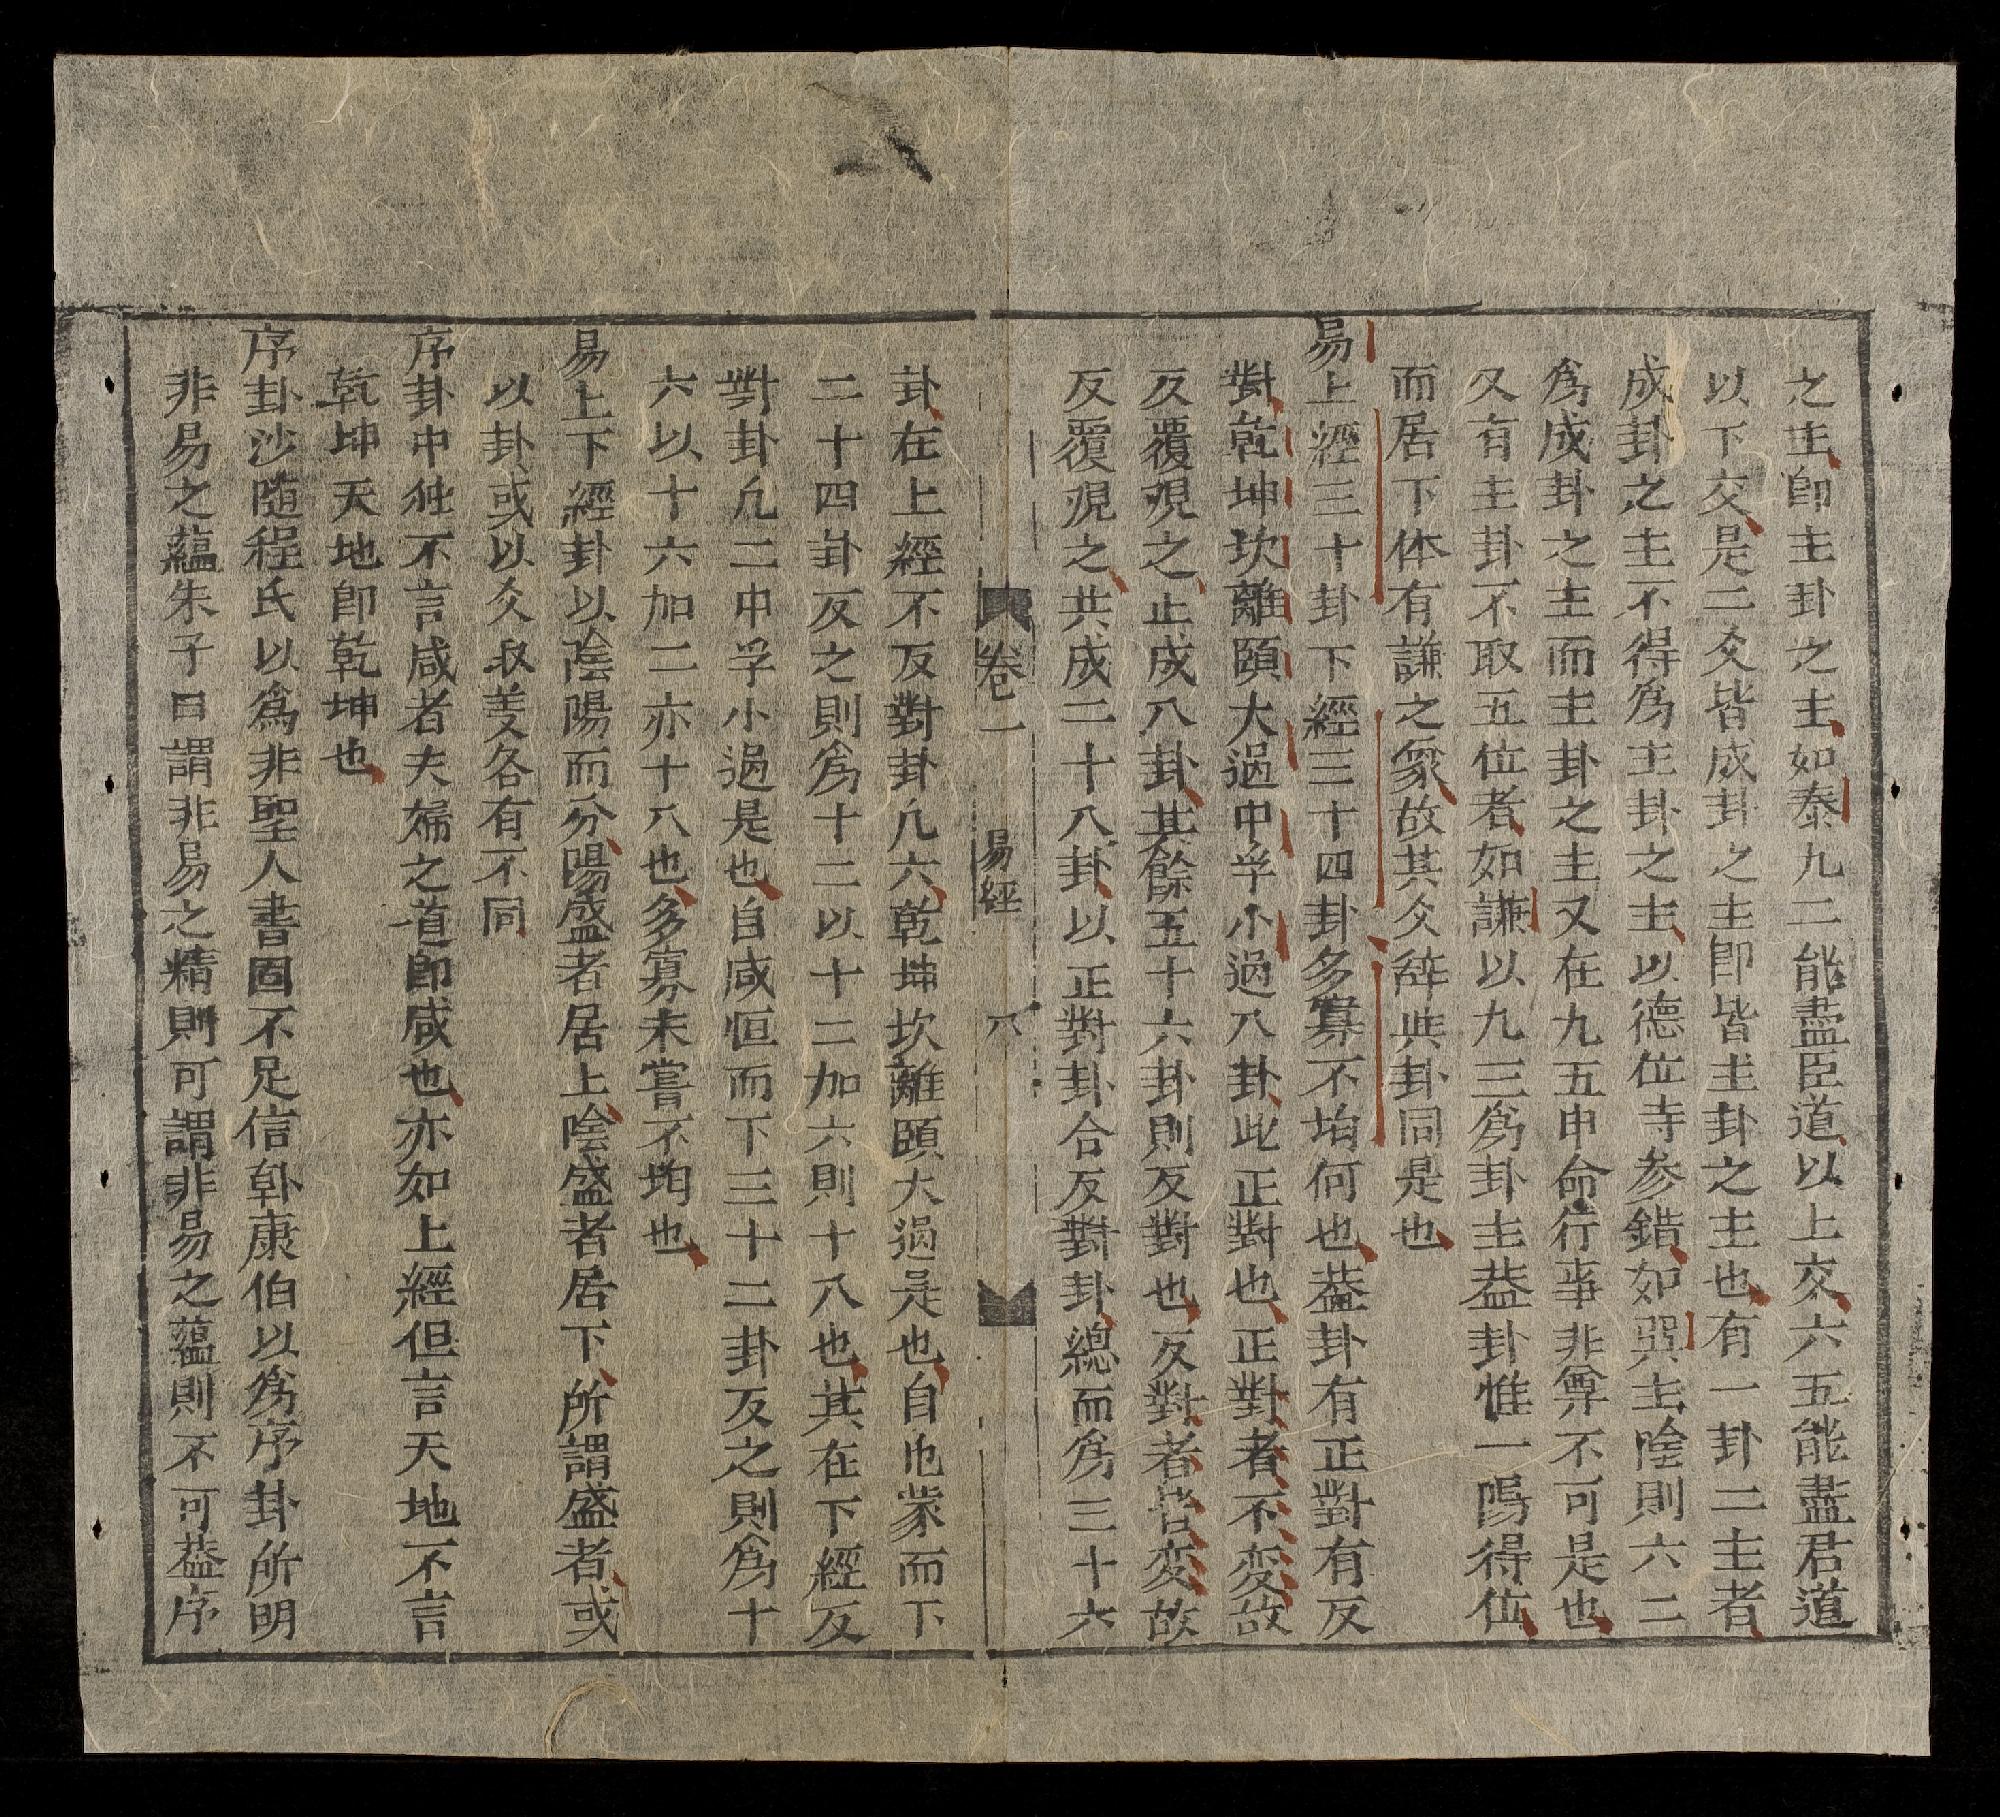 之主即主卦之主如泰九二能盡臣道以上交六五能盡君道
以下交是二爻皆成卦之主即皆主卦之主也有一卦二主者
成卦之主不得爲主卦之主以德位寺参錯如巽主陰則六二
爲成卦之主而主卦之主又在九五申命行事非尊不可是也
又有主卦不取五位者如謙以九三爲卦主盖卦惟一陽得位
而居下体有謙之象故其爻辞与卦同是也
易上經三十卦下經三十四卦多寡不均何也盖卦有正對有反
對乾坤坎離頤大過中孚小過八卦此正對也正對者不変故
反覆視之止成八卦其餘五十六卦則反對也反對者皆変故
反覆視之共成二十八卦以正對卦合反對卦總而爲三十六
卷一 易經 八
卦在上經不反對卦凡六乾坤坎離頤大過是也自屯蒙而下
二十四卦反之則爲十二以十二加六則十八也其在下經反
對卦凢二中孚小過是也自咸恒而下三十二卦反之則爲十
六以十六加二亦十八也多寡未嘗不均也
易上下經卦以陰陽而分陽盛者居上陰盛者居下所謂盛者或
以卦或以爻取义各有不同
序卦中独不言咸者夫婦之道即咸也亦如上經但言天地不言
乾坤天地即乾坤也
序卦沙随程氏以爲非聖人書固不足信韩康伯以爲序卦所明
非易之蘊朱子曰謂非易之精則可謂非易之蘊則不可盖序